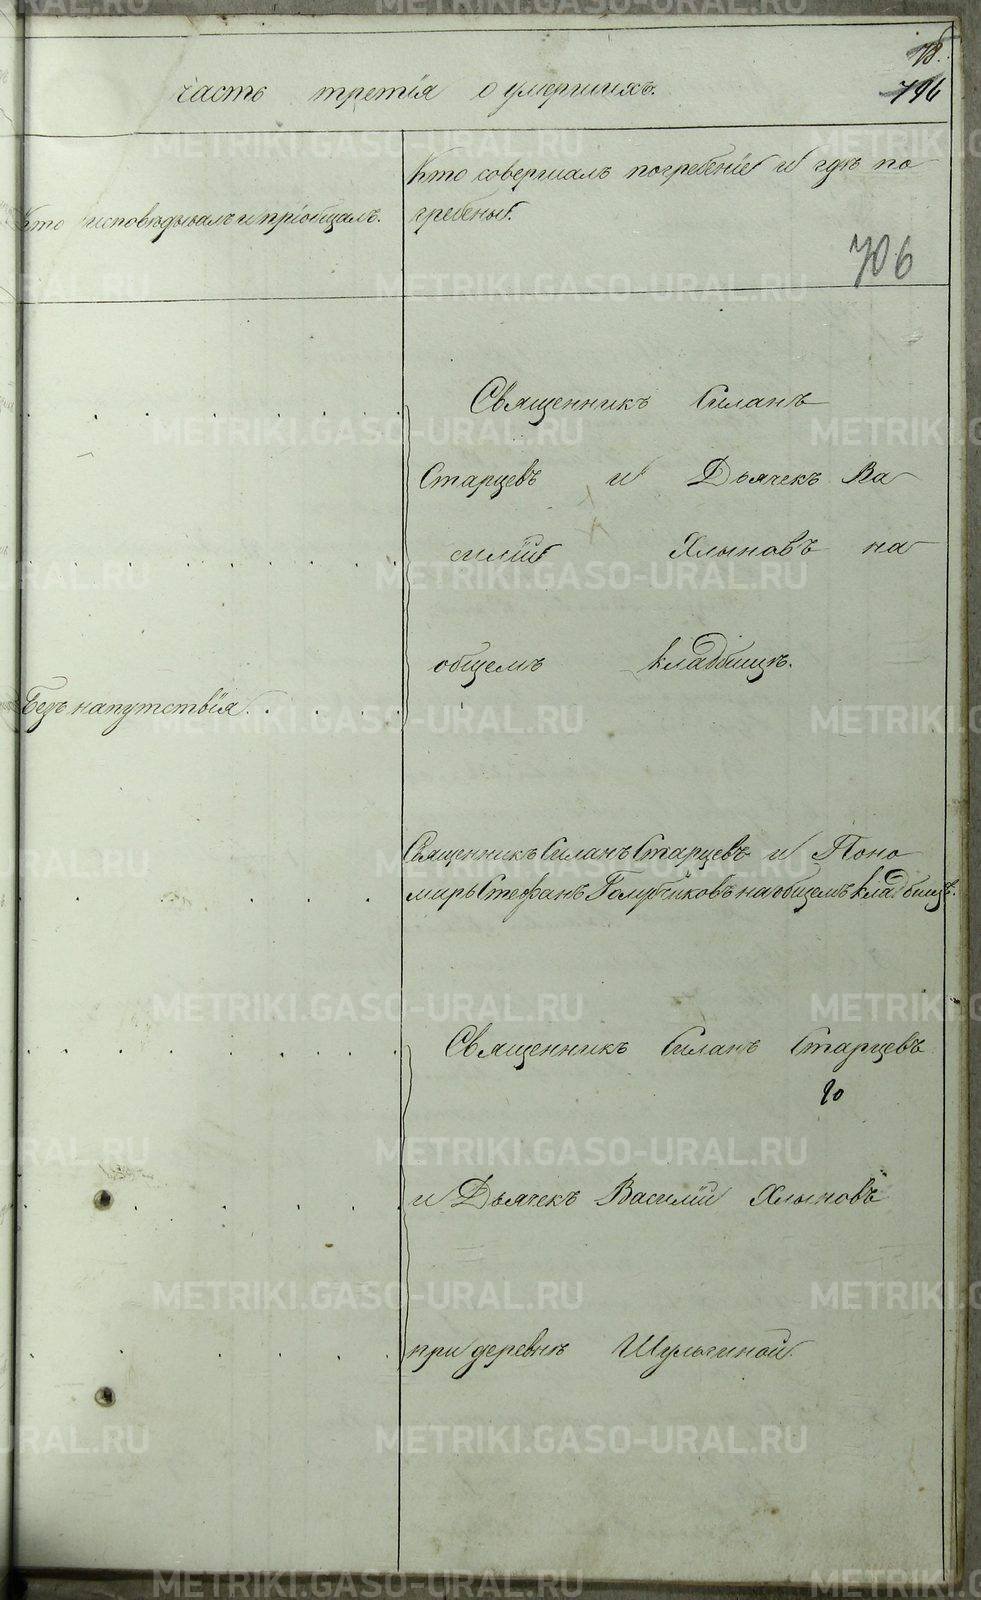 78.
796
часть третія о умершихъ.
Кто исповѣдывалъ и пріобщалъ.
Кто совершалъ погребеніе и гдѣ по
гребены.
706
Священникъ Силанъ
Старцевъ и Дьячекъ Ва
силій Хлыновъ на
общемъ кладбищѣ.
Безъ напутствія
Священникъ Силанъ Старцевъ и Поно
марь Стефанъ Голубчиковъ на общемъ кладбищѣ.
Священникъ Силанъ Старцевъ
и Дьячекъ Василій Хлыновъ
при деревнѣ Шульгиной.
METRIKI.GASO-URAL.RU